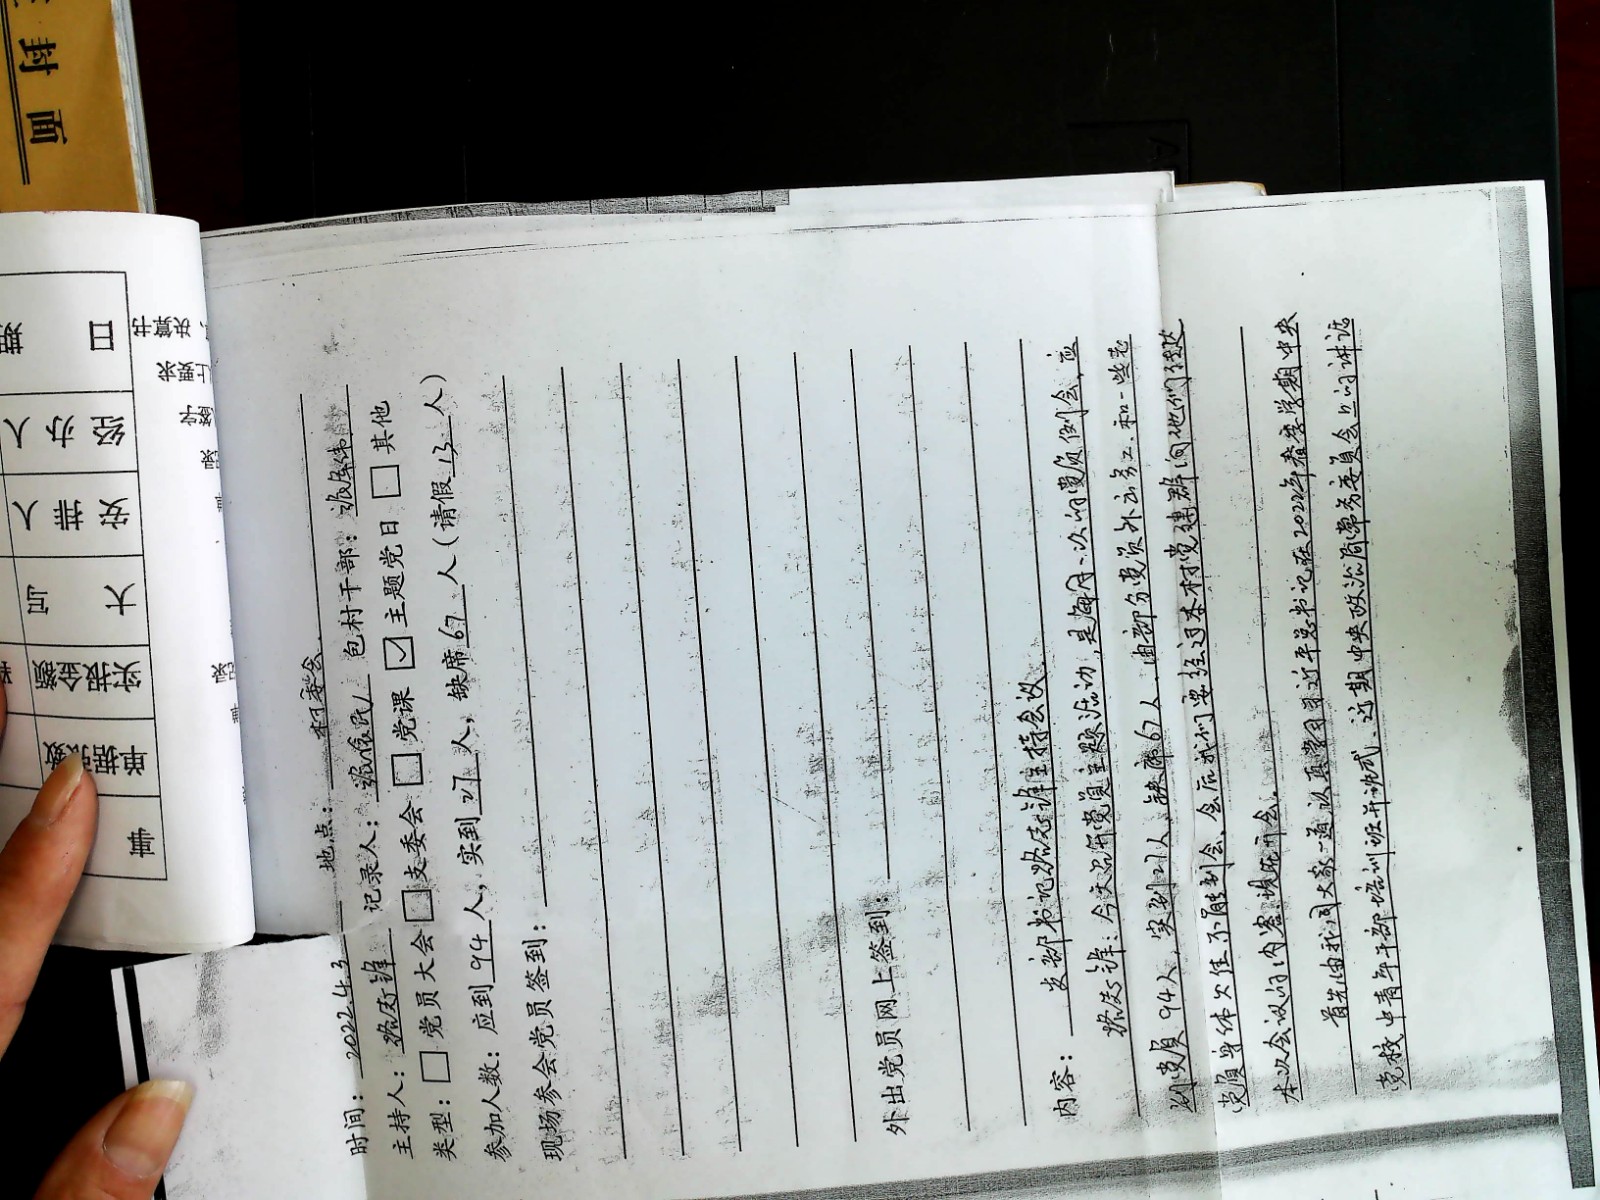 封面
日期
经办人
安排人
大
实报金额
单据张数
事
时间：2022.4.3 地点：村委会
主持人： 记录人： 包村干部：
类型：□党员大会 □支委会 □党课 ☑主题党日 □其他
参加人数：应到94人，实到27人，缺席67人（请假13人）
现场参会党员签到：
外出党员网上签到：
内容：支部书记 主持会议
今天召开党员主题活动，是每月一次的党员例会，应
到党员94人，实到27人，缺席67人，由部分党员外出务工，和一些老
党员身体欠佳不能到会，会后我们要经过本村党建群向他们
本次会议的内容，现在开会。
首先由我同大家一道认真学习习近平总书记在2022年春季学期中央
党校中青年干部培训班开班式、近期中央政治局常务委员会上的讲话